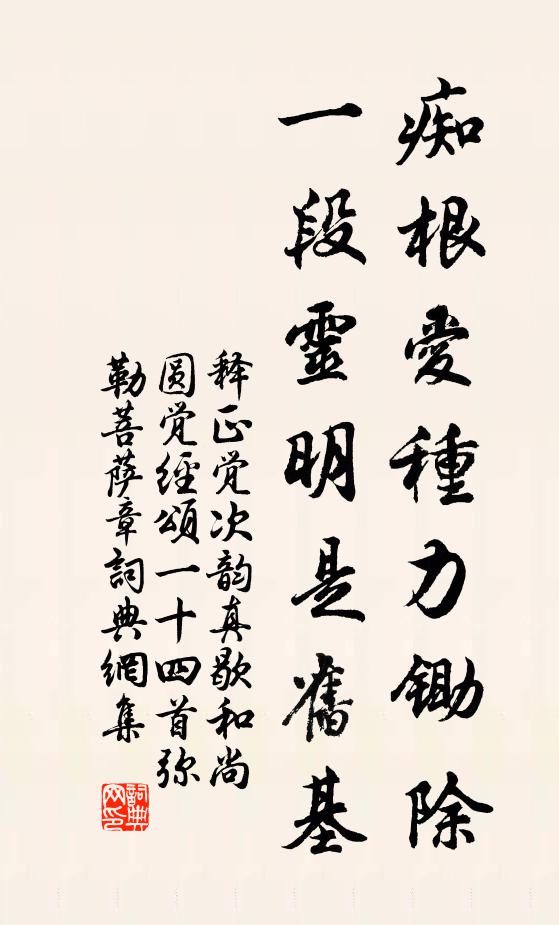 痴根愛種力鋤除
一段靈明是舊基
释正觉次韵真歇和尚
圆觉經頌一十四首弥
勒菩萨章詞典網集
詞典网印